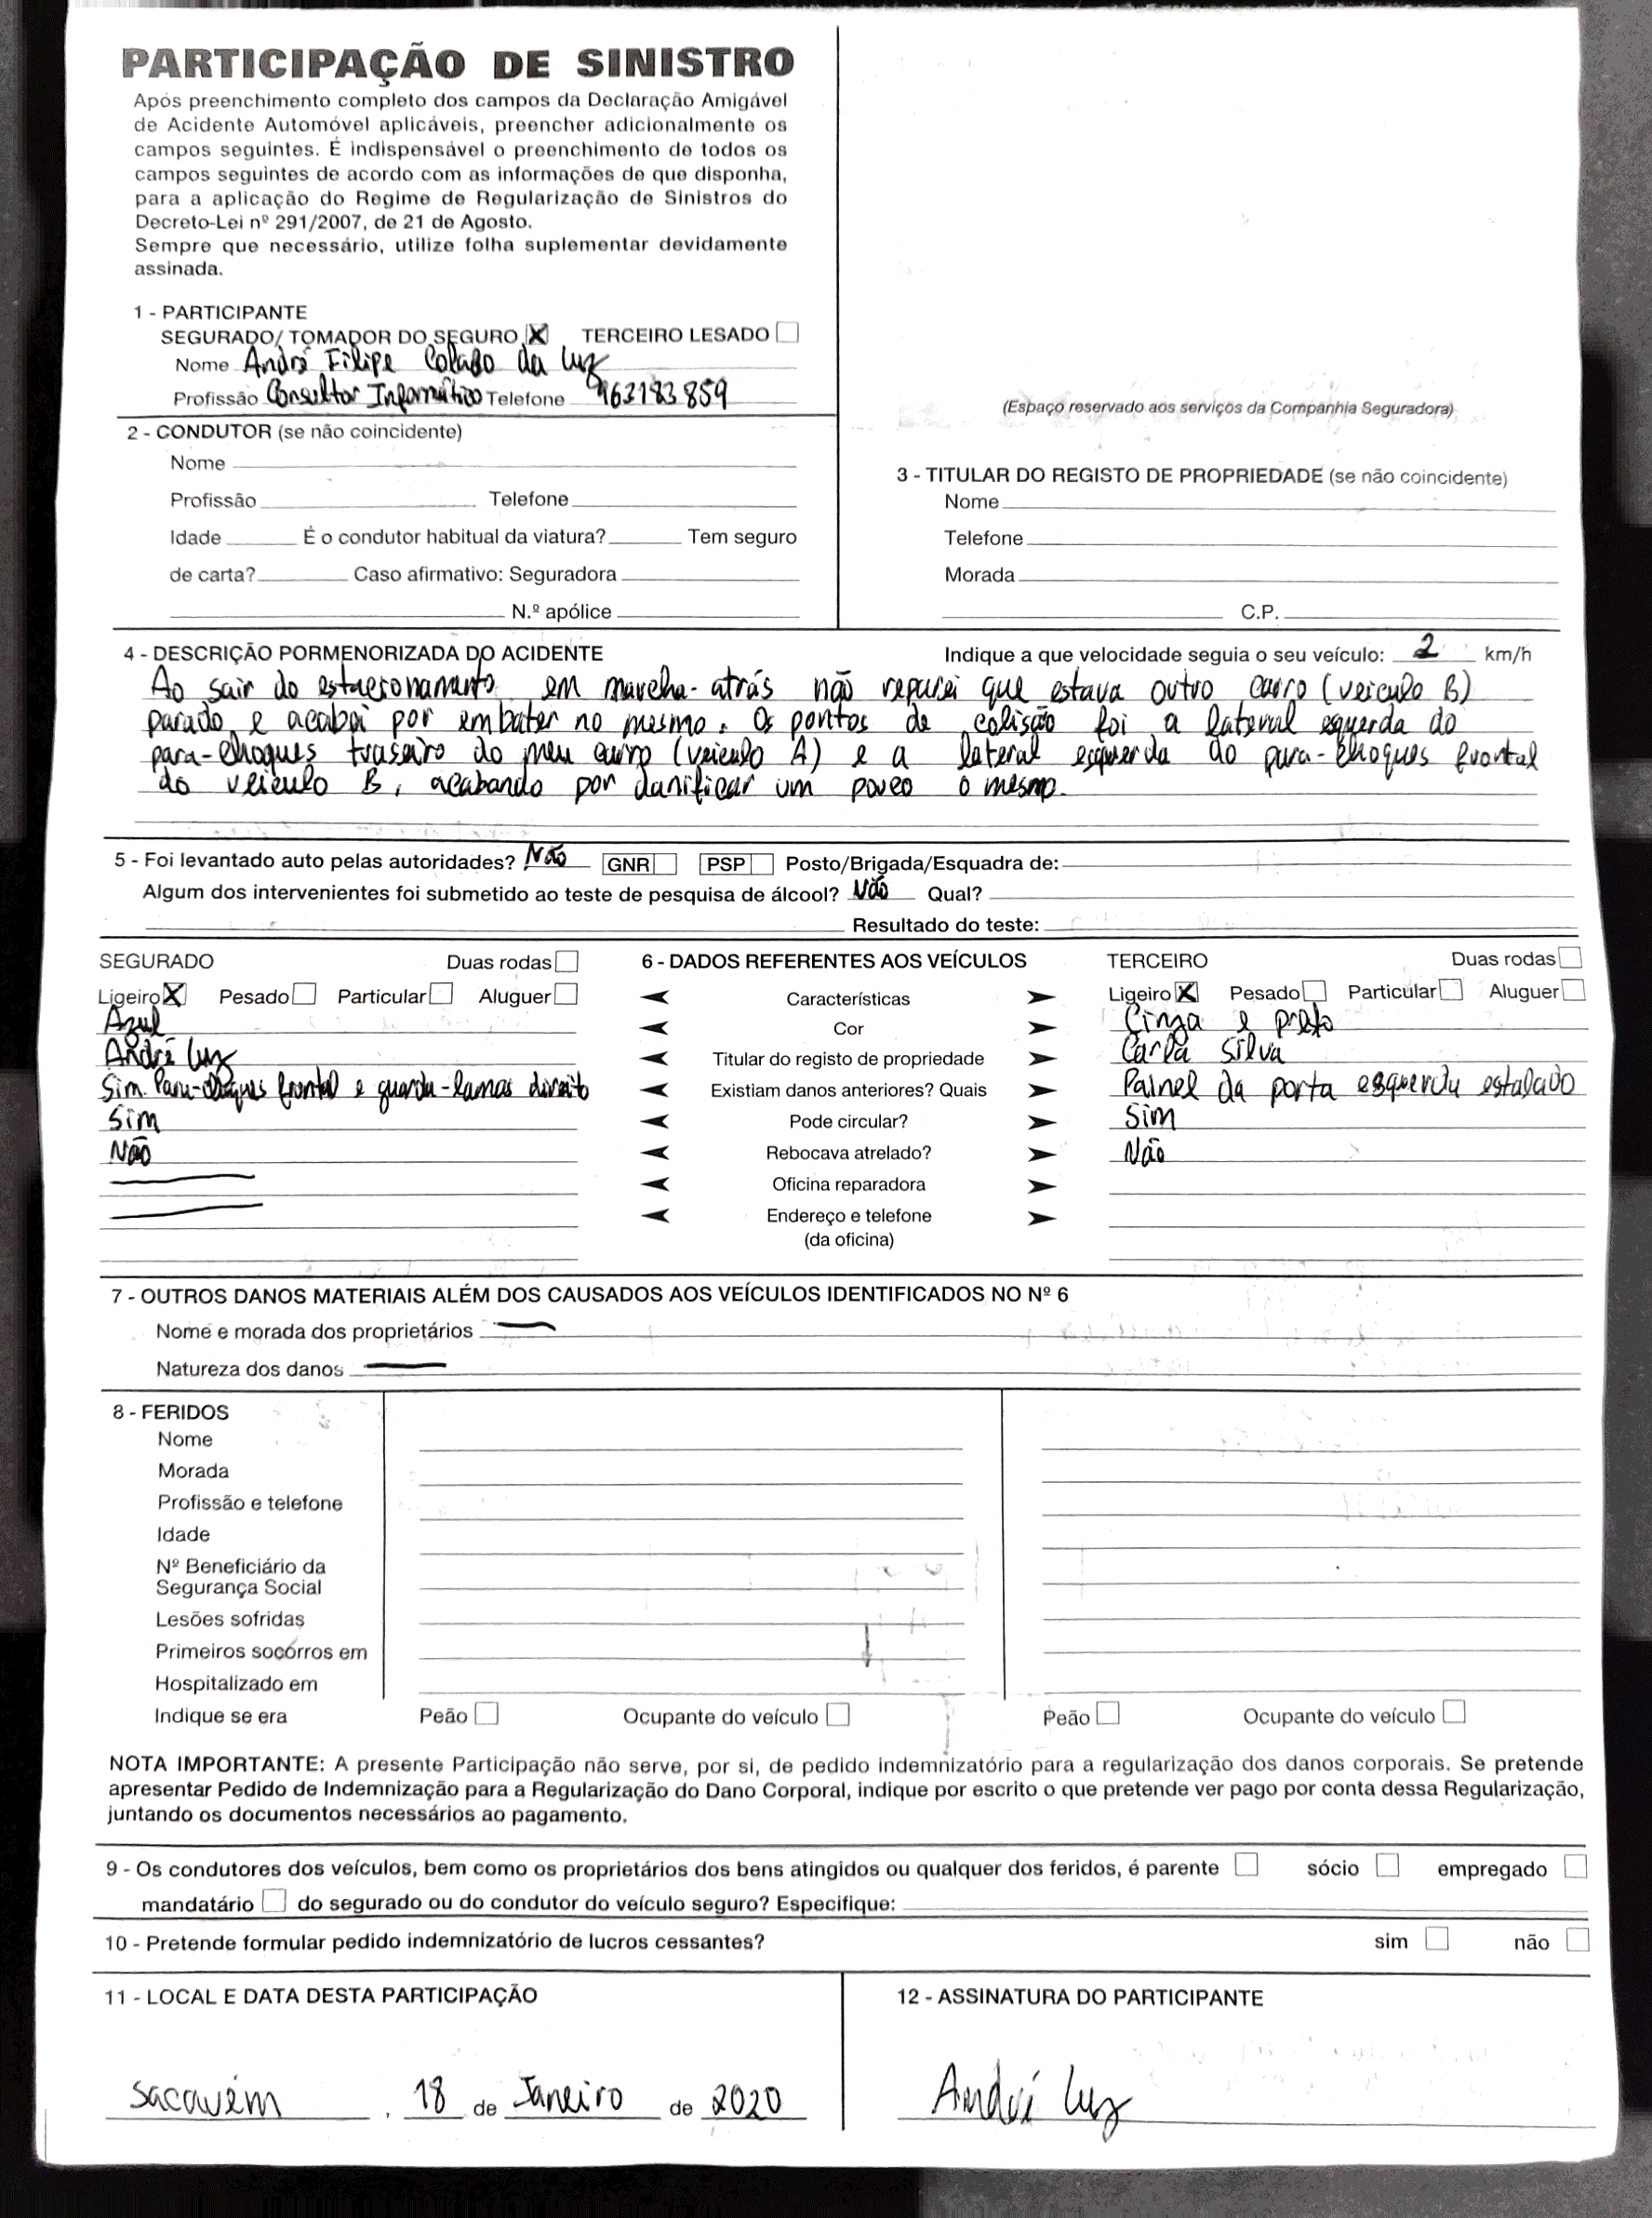 PARTICIPAÇÃO DE SINISTRO
Após preenchimento completo dos campos da Declaração Amigável
de Acidente Automóvel aplicáveis, preencher adicionalmente os
campos seguintes. É indispensável o preenchimento de todos os
campos seguintes de acordo com as informações de que disponha,
para a aplicação do Regime de Regularização de Sinistros do
Decreto-Lei nº 291/2007, de 21 de Agosto.
Sempre que necessário, utilize folha suplementar devidamente
assinada.
1 - PARTICIPANTE
SEGURADO/ TOMADOR DO SEGURO X TERCEIRO LESADO
Nome André Filipe da Luz
Profissão Consultor Informático Telefone 963183859
(Espaço reservado aos serviços da Companhia Seguradora)
2 - CONDUTOR (se não coincidente)
Nome
Profissão Telefone
Idade É o condutor habitual da viatura? Tem seguro
de carta? Caso afirmativo: Seguradora
N.º apólice
3 - TITULAR DO REGISTO DE PROPRIEDADE (se não coincidente)
Nome
Telefone
Morada
C.P.
4 - DESCRIÇÃO PORMENORIZADA DO ACIDENTE Indique a que velocidade seguia o seu veículo: 2 km/h
Ao sair do estacionamento em marcha-atrás não reparei que estava outro carro (veiculo B)
parado e acabei por embater no mesmo. Os pontos de colisão foi a lateral esquerda do
para-choques traseiro do meu carro (veiculo A) e a lateral esquerda do para-choques frontal
do veiculo B, acabando por danificar um pouco o mesmo.
5 - Foi levantado auto pelas autoridades? Não GNR PSP Posto/Brigada/Esquadra de:
Algum dos intervenientes foi submetido ao teste de pesquisa de álcool? Não Qual?
Resultado do teste:
SEGURADO Duas rodas 6 - DADOS REFERENTES AOS VEÍCULOS TERCEIRO Duas rodas
Ligeiro X Pesado Particular Aluguer Características Ligeiro X Pesado Particular Aluguer
Azul Cor Cinza e preto
André Luz Titular do registo de propriedade Carla Silva
Sim. Para-choques frontal e guarda-lamas direito Existiam danos anteriores? Quais Painel da porta esquerda estalado
Sim Pode circular? Sim
Não Rebocava atrelado? Não
Oficina reparadora
Endereço e telefone
(da oficina)
7 - OUTROS DANOS MATERIAIS ALÉM DOS CAUSADOS AOS VEÍCULOS IDENTIFICADOS NO Nº 6
Nome e morada dos proprietários
Natureza dos danos
8 - FERIDOS
Nome
Morada
Profissão e telefone
Idade
Nº Beneficiário da
Segurança Social
Lesões sofridas
Primeiros socorros em
Hospitalizado em
Indique se era Peão Ocupante do veículo Peão Ocupante do veículo
NOTA IMPORTANTE: A presente Participação não serve, por si, de pedido indemnizatório para a regularização dos danos corporais. Se pretende
apresentar Pedido de Indemnização para a Regularização do Dano Corporal, indique por escrito o que pretende ver pago por conta dessa Regularização,
juntando os documentos necessários ao pagamento.
9 - Os condutores dos veículos, bem como os proprietários dos bens atingidos ou qualquer dos feridos, é parente sócio empregado
mandatário do segurado ou do condutor do veículo seguro? Especifique:
10 - Pretende formular pedido indemnizatório de lucros cessantes? sim não
11 - LOCAL E DATA DESTA PARTICIPAÇÃO
Sacavém, 18 de Janeiro de 2020
12 - ASSINATURA DO PARTICIPANTE
André Luz